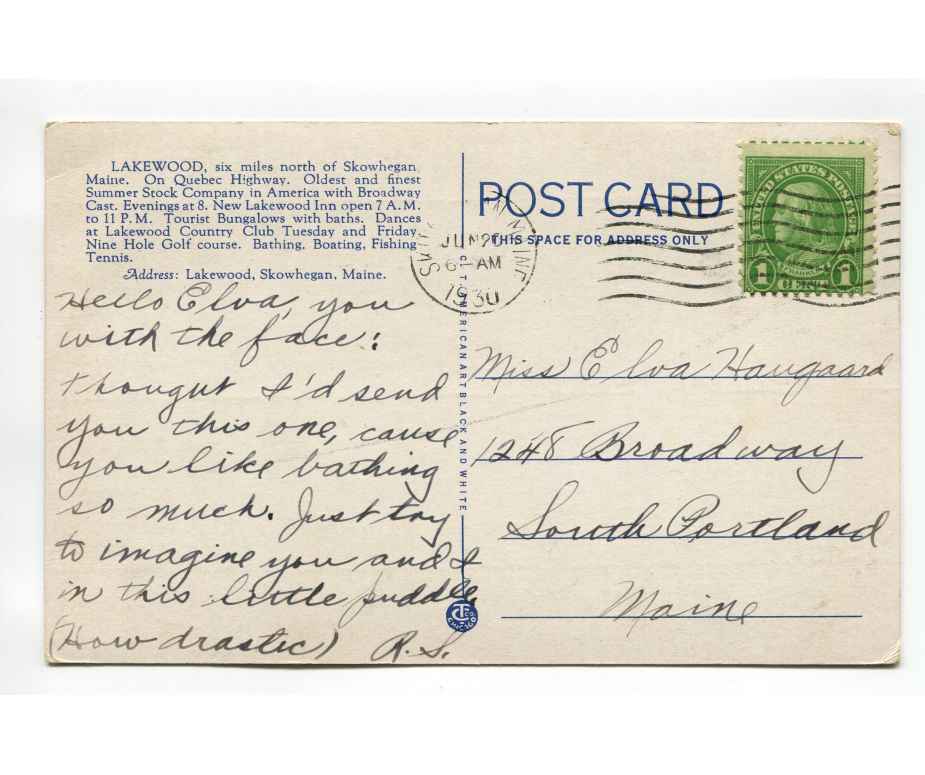 LAKEWOOD, six miles north of Skowhegan
Maine. On Quebec Highway. Oldest and finest
Summer Stock Company in America with Broadway
Cast. Evenings at 8. New Lakewood Inn open 7 A.M.
to 11 P.M. Tourist Bungalows with baths. Dances
at Lakewood Country Club Tuesday and Friday
Nine Hole Golf course. Bathing, Boating, Fishing
Tennis.
Address: Lakewood, Skowhegan, Maine.
Hello Elva, you
with the face:
thought I'd send
you this one, cause
you like bathing
so much. Just try
to imagine you and I
in this little puddle.
(How drastic) R.S.
POST CARD
THIS SPACE FOR ADDRESS ONLY
JUN 20
6 - AM
1930
UNITED STATES POSTAGE
FRANKLIN
1 1
Miss Elva Haugaard
1248 Broadway
South Portland
Maine
C.T. AMERICAN ART BLACK AND WHITE
CTCO
CHICAGO